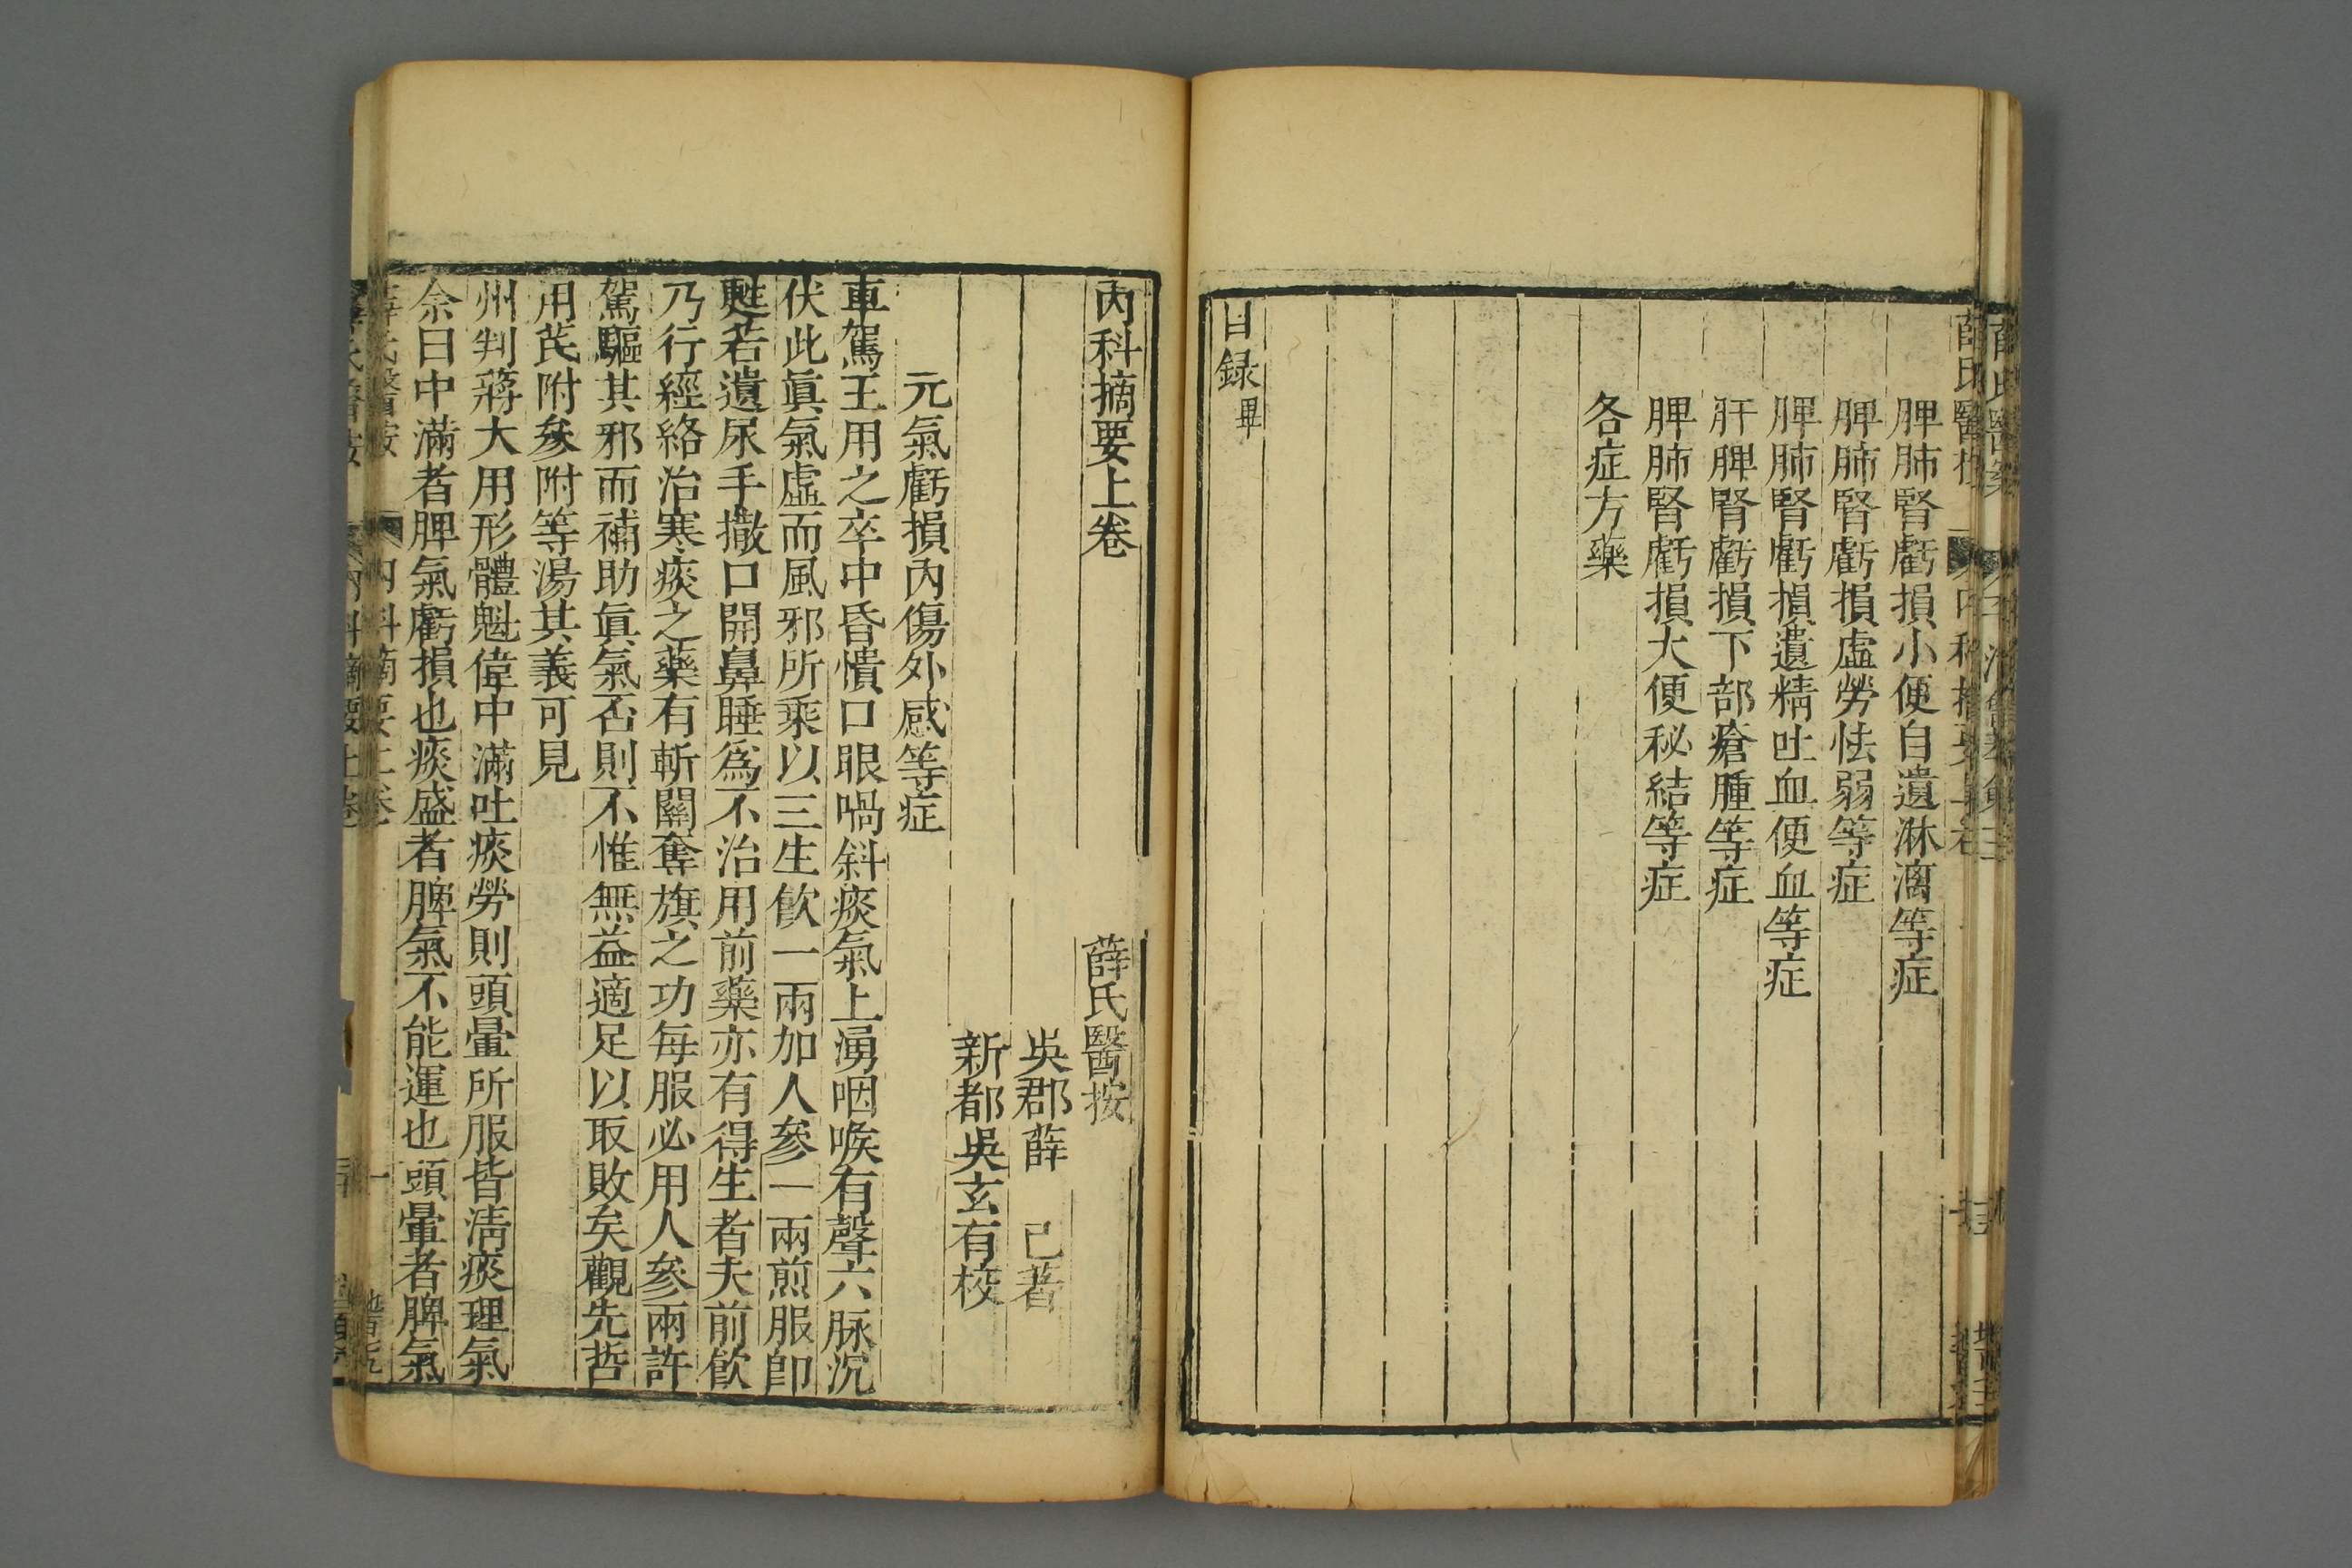 脾肺腎虧損小便自遺淋漓等症
脾肺腎虧損虛勞怯弱等症
脾肺腎虧損遺精吐血便血等症
肝脾腎虧損下部瘡腫等症
脾肺腎虧損大便秘結等症
各症方藥
目録畢
內科摘要上卷 薛氏醫按
吳郡薛 己著
新都吳玄有校
元氣虧損內傷外感等症
車駕王用之卒中昏憒口眼喎斜痰氣上湧咽喉有聲六脉沉
伏此眞氣虛而風邪所乘以三生飮一兩加人參一兩煎服卽
甦若遺尿手撒口開鼻睡爲不治用前藥亦有得生者夫前飮
乃行經絡治寒痰之藥有斬關奪旗之功每服必用人參兩許
駕驅其邪而補助眞氣否則不惟無益適足以取敗矣觀先哲
用芪附參附等湯其義可見
州判蔣大用形體魁偉中滿吐痰勞則頭暈所服皆淸痰理氣
余曰中滿者脾氣虧損也痰盛者脾氣不能運也頭暈者脾氣